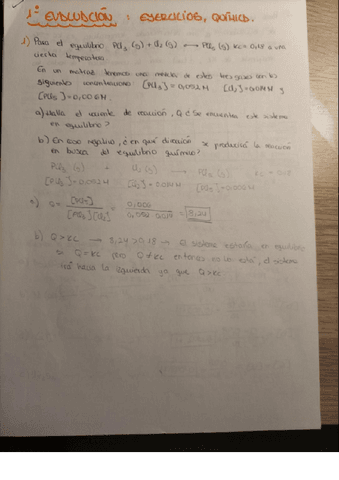 1ª EVALUACIÓN: EJERCICIOS, QUÍMICA.
1) Para el equilibrio PCl3 (g) + Cl2 (g) → PCl5 (g) Kc = 0,18 a una
cierta temperatura
En un matraz tenemos una mezcla de estos tres gases con las
siguientes concentraciones [PCl3] = 0,052 M [Cl2] = 0,014 M y
[PCl5] = 0,006 M.
a) Halla el cociente de reacción, Q ¿Se encuentra este sistema
en equilibrio?
b) En caso negativo, ¿en qué dirección se producirá la reacción
en busca del equilibrio químico?
PCl3 (g) + Cl2 (g) → PCl5 (g)
a) Q = [PCl5] / [PCl3][Cl2] = = 8,24
b) Q > Kc → 8,24 > 0,18 → Q sistema en equilibrio
Q = Kc pero Q ≠ Kc entonces no lo está, el sistema
irá hacia la izquierda ya que Q > Kc